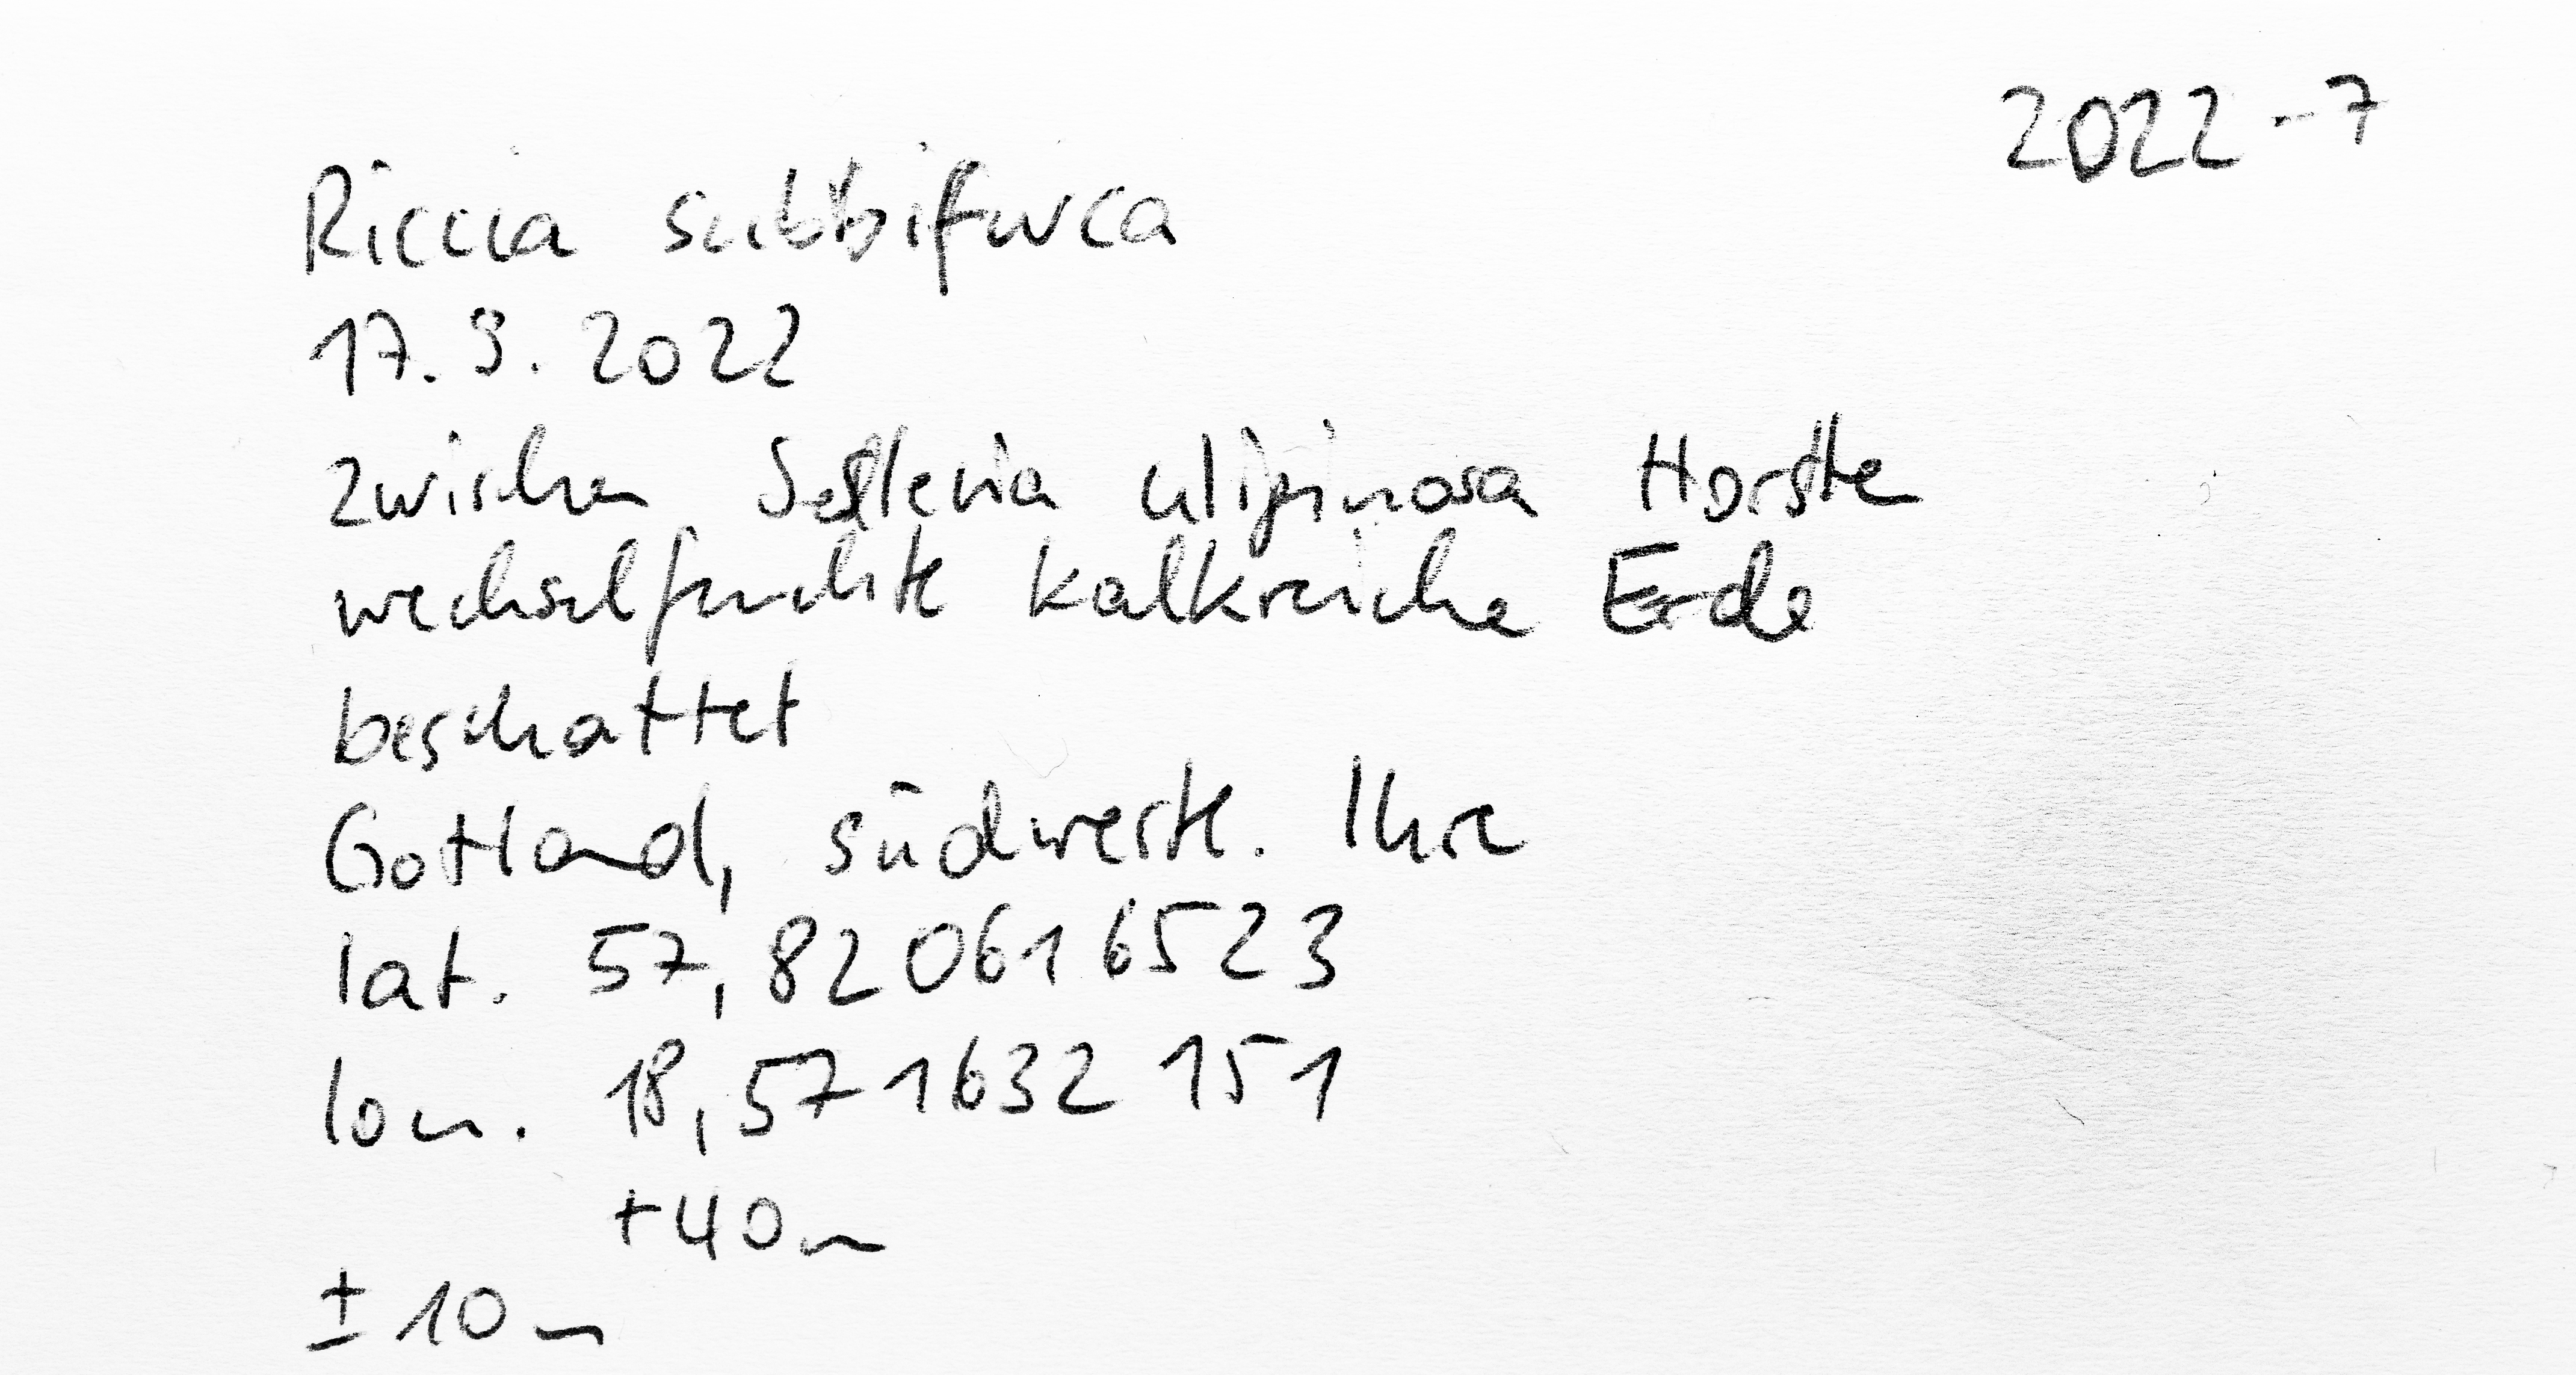 2022-7
Riccia subbifurca
17. 9. 2022
zwischen Sesleria uliginosa Horsten
wechselfeuchte kalkreiche Erde
beschattet
Gotland, südwestl. Ihre
lat. 57,820616523
lon. 18,571632151
+40m
± 10m